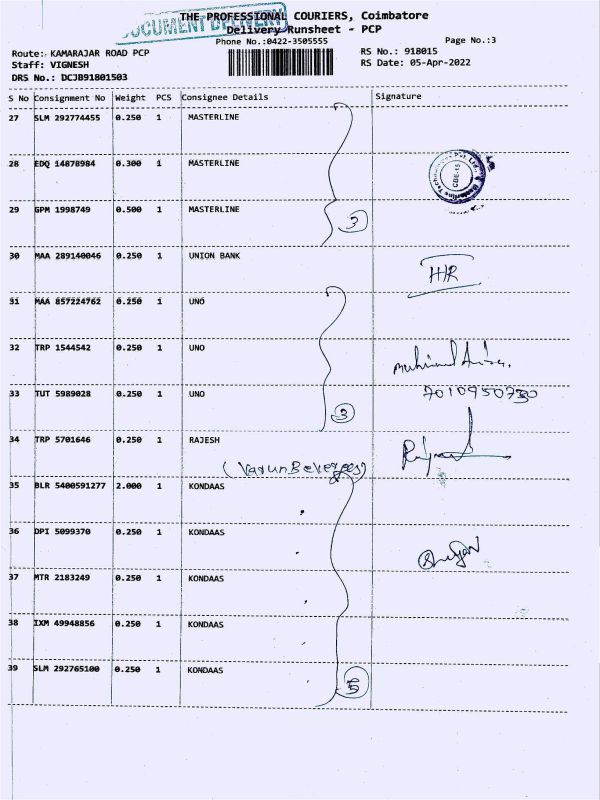 DOCUMENT DELIVERY
THE PROFESSIONAL COURIERS, Coimbatore
Delivery Runsheet - PCP
Phone No.:0422-3505555 Page No.:3
Route: KAMARAJAR ROAD PCP RS No.: 918015
Staff: VIGNESH RS Date: 05-Apr-2022
DRS No.: DCJB91801503
S No Consignment No Weight PCS Consignee Details Signature
27 SLM 292774455 0.250 1 MASTERLINE
28 EDQ 14878984 0.300 1 MASTERLINE
29 GPM 1998749 0.500 1 MASTERLINE
3
30 MAA 289140046 0.250 1 UNION BANK
HR
31 MAA 857224762 0.250 1 UNO
32 TRP 1544542 0.250 1 UNO
33 TUT 5989028 0.250 1 UNO
7010950730
3
34 TRP 5701646 0.250 1 RAJESH
(Varun Beverges)
35 BLR 5400591277 2.000 1 KONDAAS
36 DPI 5099370 0.250 1 KONDAAS
37 MTR 2183249 0.250 1 KONDAAS
38 IXM 49948856 0.250 1 KONDAAS
39 SLM 292765100 0.250 1 KONDAAS
5